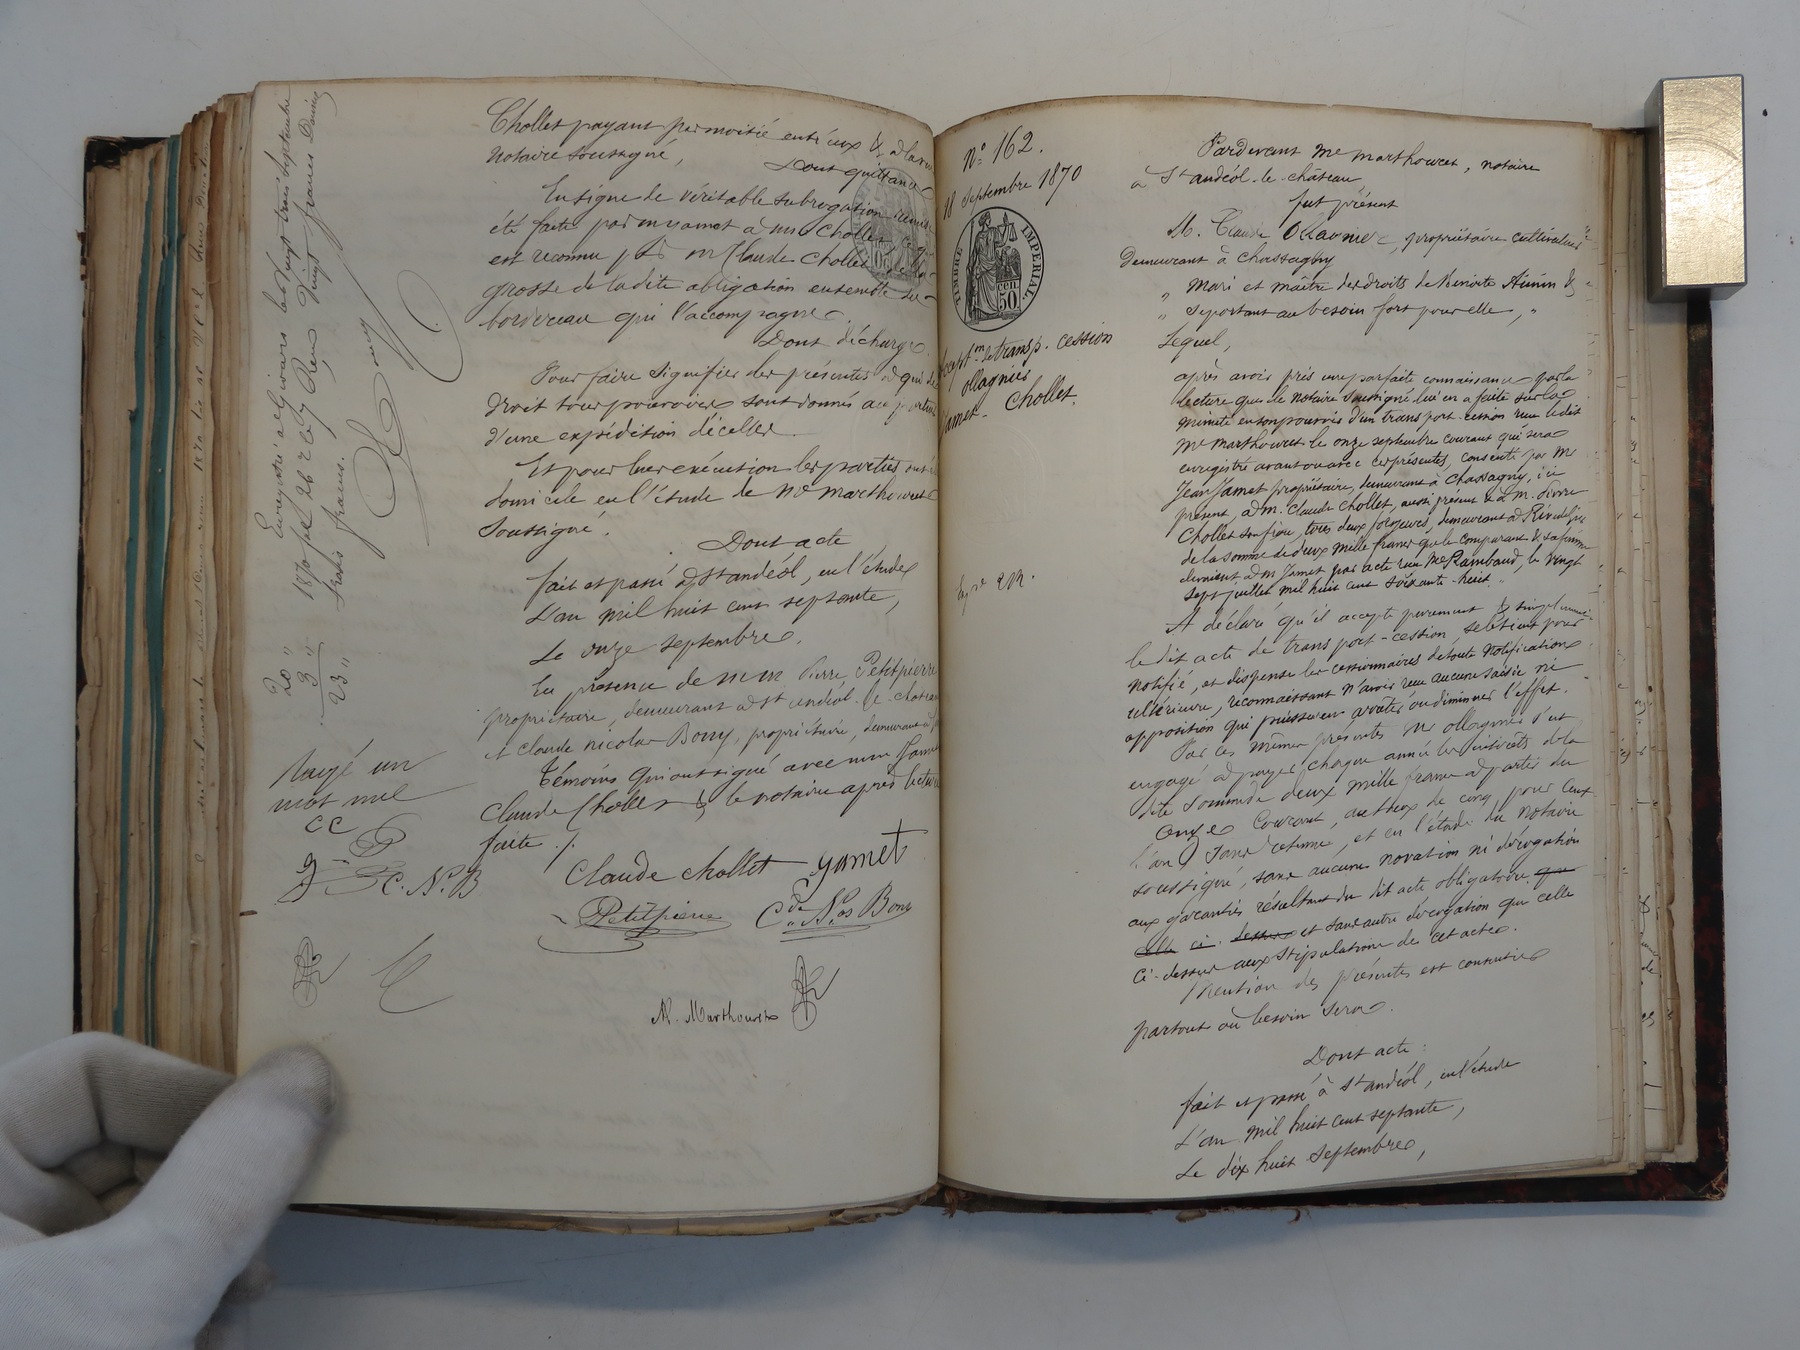 Chollet payant par moitié entr'eux &
notaire soussigné,
Dont quittance
En signe de véritable subrogation
été faite par m yamet à mrs Chollet
est reconnu par m Claude Chollet de la
grosse de la dite obligation ensemble du
bordereau qui l'accompagne.
Dont décharge.
Pour faire signifier les présentes à qui de
droit tous pouvoirs sont donnés au porteur
d'une expédition d'icelles.
Et pour leur exécution les parties
domicile en l'étude de Me Marthouret
soussigné.
Dont acte
fait et passé à St andéol, en l'étude
L'an mil huit cent septante,
Le onze septembre.
En présence de mm. Pierre Petitpierre
propriétaire, demeurant à St andéol-le-chateau
et Claude nicolas Bony, propriétaire, demeurant à
Témoins qui ont signé avec mrs Jamet
Claude Chollet & le notaire après lecture
faite ./.
Claude chollet yamet
Petitpierre Cde Nos Bony
M. Marthouret
Enregistré à Givors le Vingt trois Septembre
1870 fol 26 Reçu Vingt francs Décime
trois francs.
20 "
3 "
23 "
Rayé un
mot nul
CC
P
J
C. N. B
N° 162.
18 Septembre 1870
TIMBRE IMPERIAL
50 cen
accept.on de transp. cession
ollagnier
Jamet - Chollet.
Pardevant Me Marthouret, notaire
à St andéol-le-château
fut présent
M. Claude Ollagnier, propriétaire cultivateur
Demeurant à Chassagny
" Mari et maître des droits de Benoite
" se portant au besoin fort pour elle, "
Lequel,
après avoir pris une parfaite connaissance par la
lecture que le notaire soussigné lui en a faite sur la
minute en son pouvoir d'un transport-cession reçu le dit
Me Marthouret le onze septembre courant qui sera
enregistré avant ou avec ces présentes, consenti par Mr
Jean Jamet propriétaire, demeurant à Chassagny, ici
présent, à M. Claude Chollet, aussi présent & à M. Pierre
Chollet son frère, tous deux demeurant à Rive de Gier
de la somme de deux mille francs que le comparant & sa femme
devaient à M Jamet par acte reçu Me Rambaud, le vingt
sept juillet mil huit cent soixante-huit.
A déclaré qu'il accepte purement & simplement
le dit acte de transport-cession, se le tient pour
notifié, et dispense les cessionnaires de toute notification
ultérieure, reconnaissant n'avoir reçu aucune saisie ni
opposition qui puisse en arrêter ou diminuer l'effet.
Par ces mêmes présentes Mr ollagnier s'est
engagé à payer chaque année les intérêts de la
dite somme de deux mille francs à partir du
onze courant, au taux de cinq pour cent
l'an sans retenue, et en l'étude du notaire
soussigné, sans aucune novation ni dérogation
aux garanties résultant du dit acte obligatoire que
celle ci-dessus et sans autre dérogation que celle
ci-dessus aux stipulations de cet acte.
Mention des présentes est consentie
partout où besoin sera.
Dont acte:
fait et passé à St andéol, en l'étude
L'an mil huit cent septante,
Le dix huit Septembre,